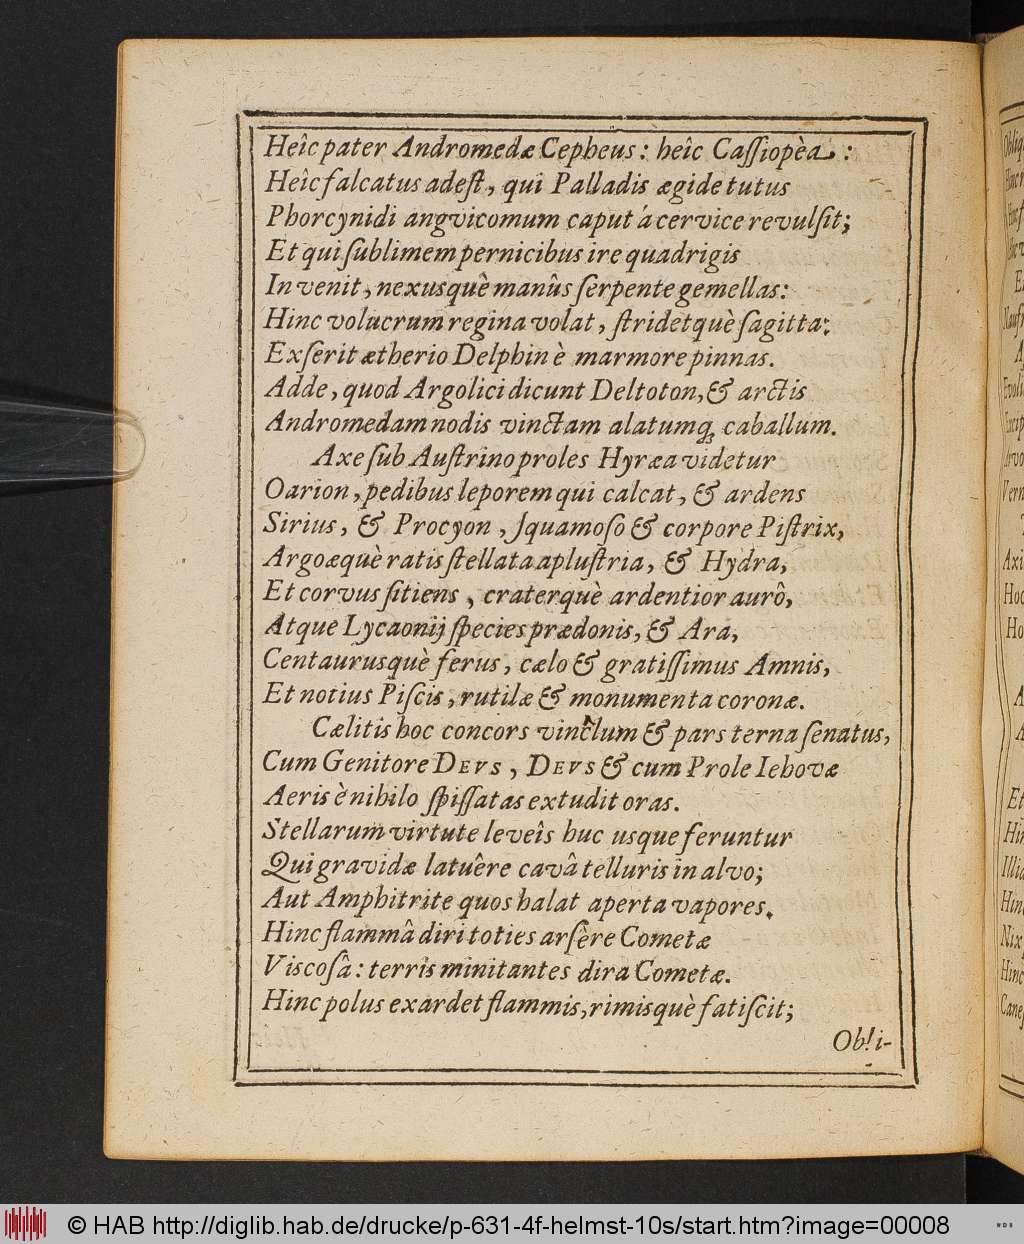 Heîc pater Andromedæ Cepheus: heîc Caſſiopèa :
Heîc falcatus adeſt, qui Palladis ægide tutus
Phorcynidi angvicomum caput à cervice revulſit;
Et qui ſublimem pernicibus ire quadrigis
Invenit, nexusquè manûs ſerpente gemellas:
Hinc volucrum regina volat, ſtridetquè ſagitta:
Exſerit ætherio Delphin è marmore pinnas.
Adde, quod Argolici dicunt Deltoton, & arctis
Andromedam nodis vinctam alatumq́; caballum.
Axe ſub Auſtrino proles Hyræa videtur
Oarion, pedibus leporem qui calcat, & ardens
Sirius, & Procyon, ſquamoſo & corpore Piſtrix,
Argoæquè ratis ſtellata apluſtria, & Hydra,
Et corvus ſitiens, craterquè ardentior aurô,
Atque Lycaonij ſpecies prædonis, & Ara,
Centaurusquè ferus, cælo & gratiſſimus Amnis,
Et notius Piſcis, rutilæ & monumenta coronæ.
Cælitis hoc concors vinclum & pars terna ſenatus,
Cum Genitore DEVS, DEVS & cum Prole Iehovæ
Aeris è nihilo ſpiſſatas extudit oras.
Stellarum virtute leveîs huc usque feruntur
Qui gravidæ latuêre cavâ telluris in alvo;
Aut Amphitrite quos halat aperta vapores.
Hinc flammâ diri toties arſêre Cometæ
Viscoſâ: terris minitantes dira Cometæ.
Hinc polus exardet flammis, rimisquè fatiſcit;
Obli-
© HAB http://diglib.hab.de/drucke/p-631-4f-helmst-10s/start.htm?image=00008